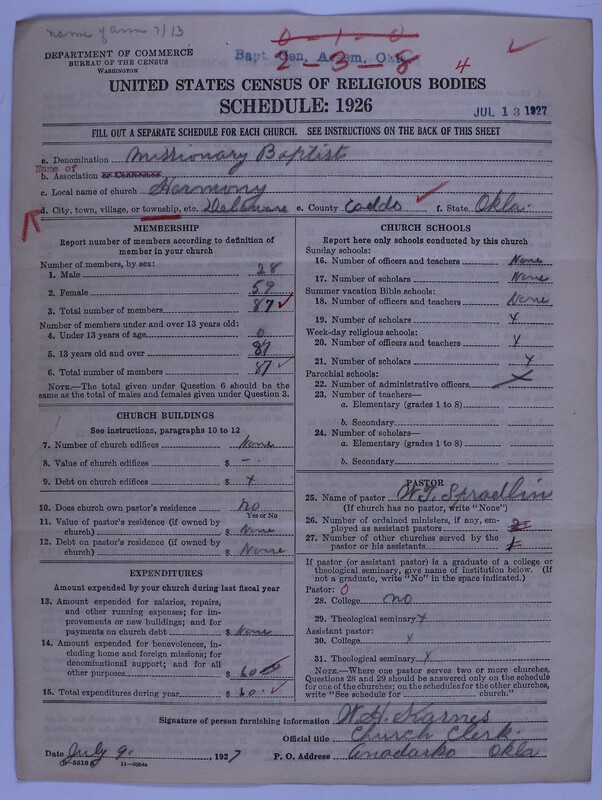 name of assn 7/13
0-1-0
DEPARTMENT OF COMMERCE
BUREAU OF THE CENSUS
WASHINGTON
Bapt. Gen. Assem. Okla.
2-3-8 4
UNITED STATES CENSUS OF RELIGIOUS BODIES
SCHEDULE: 1926
JUL 13 1927
FILL OUT A SEPARATE SCHEDULE FOR EACH CHURCH. SEE INSTRUCTIONS ON THE BACK OF THIS SHEET
a. Denomination Missionary Baptist
Name of
b. Association or Conference
c. Local name of church Harmony
d. City, town, village, or township, etc. Delaware e. County Caddo f. State Okla.
MEMBERSHIP
Report number of members according to definition of
member in your church
Number of members, by sex:
1. Male 28
2. Female 59
3. Total number of members 87
Number of members under and over 13 years old:
4. Under 13 years of age 0
5. 13 years old and over 87
6. Total number of members 87
NOTE.—The total given under Question 6 should be
same as the total of males and females given under Question 3.
CHURCH BUILDINGS
See instructions, paragraphs 10 to 12
7. Number of church edifices None
8. Value of church edifices $ -
9. Debt on church edifices $ x
10. Does church own pastor's residence no
Yes or No
11. Value of pastor's residence (if owned by
church) $ None
12. Debt on pastor's residence (if owned by
church) $ None
EXPENDITURES
Amount expended by your church during last fiscal year
13. Amount expended for salaries, repairs,
and other running expenses; for im-
provements or new buildings; and for
payments on church debt $ None
14. Amount expended for benevolences, in-
cluding home and foreign missions; for
denominational support; and for all
other purposes $ 60
15. Total expenditures during year $ 60.
CHURCH SCHOOLS
Report here only schools conducted by this church
Sunday schools:
16. Number of officers and teachers None
17. Number of scholars None
Summer vacation Bible schools:
18. Number of officers and teachers None
19. Number of scholars x
Week-day religious schools:
20. Number of officers and teachers x
21. Number of scholars x
Parochial schools:
22. Number of administrative officers x
23. Number of teachers—
a. Elementary (grades 1 to 8)
b. Secondary
24. Number of scholars—
a. Elementary (grades 1 to 8)
b. Secondary
PASTOR
25. Name of pastor W.T. Spradlin
(If church has no pastor, write "None")
26. Number of ordained ministers, if any, em-
ployed as assistant pastors 2
27. Number of other churches served by the
pastor or his assistants 1
If pastor (or assistant pastor) is a graduate of a college or
theological seminary, give name of institution below. (If
not a graduate, write "No" in the space indicated.)
Pastor: 0
28. College no
29. Theological seminary x
Assistant pastor:
30. College x
31. Theological seminary x
NOTE.—Where one pastor serves two or more churches,
Questions 28 and 29 should be answered only on the schedule
for one of the churches; on the schedules for the other churches,
write "See schedule for church."
Signature of person furnishing information W.H. Karnes
Official title Church Clerk.
Date July 9. , 1927 P. O. Address Anadarko Okla
11—9054a